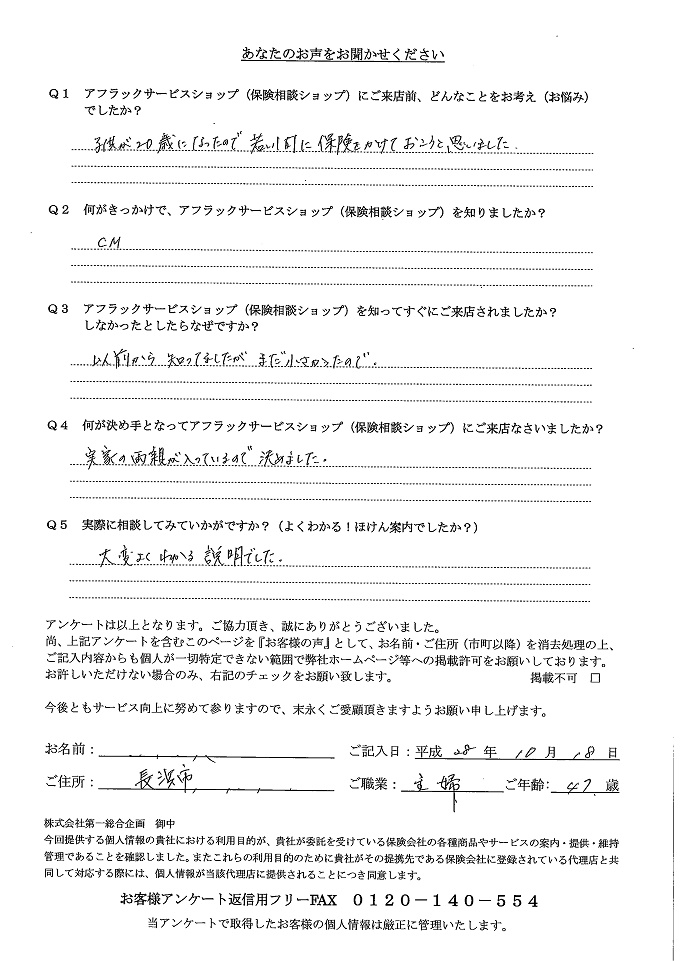 あなたのお声をお聞かせください
Q1 アフラックサービスショップ（保険相談ショップ）にご来店前、どんなことをお考え（お悩み）
でしたか？
子供が20歳になったので 若い内に 保険をかけておこうと思いました.
Q2 何がきっかけで、アフラックサービスショップ（保険相談ショップ）を知りましたか？
CM
Q3 アフラックサービスショップ（保険相談ショップ）を知ってすぐにご来店されましたか？
しなかったとしたらなぜですか？
以前から 知ってましたが まだ小さかったので.
Q4 何が決め手となってアフラックサービスショップ（保険相談ショップ）にご来店なさいましたか？
実家の両親が入っているので 決めました.
Q5 実際に相談してみていかがですか？（よくわかる！ほけん案内でしたか？）
大変よく わかる 説明でした.
アンケートは以上となります。ご協力頂き、誠にありがとうございました。
尚、上記アンケートを含むこのページを『お客様の声』として、お名前・ご住所（市町以降）を消去処理の上、
ご記入内容からも個人が一切特定できない範囲で弊社ホームページ等への掲載許可をお願いしております。
お許しいただけない場合のみ、右記のチェックをお願い致します。 掲載不可 □
今後ともサービス向上に努めて参りますので、末永くご愛顧頂きますようお願い申し上げます。
お名前： ご記入日：平成 28 年 10 月 18 日
ご住所： 長浜市 ご職業： 主婦 ご年齢： 47 歳
株式会社第一総合企画 御中
今回提供する個人情報の貴社における利用目的が、貴社が委託を受けている保険会社の各種商品やサービスの案内・提供・維持
管理であることを確認しました。またこれらの利用目的のために貴社がその提携先である保険会社に登録されている代理店と共
同して対応する際には、個人情報が当該代理店に提供されることにつき同意します。
お客様アンケート返信用フリーFAX 0120-140-554
当アンケートで取得したお客様の個人情報は厳正に管理いたします。